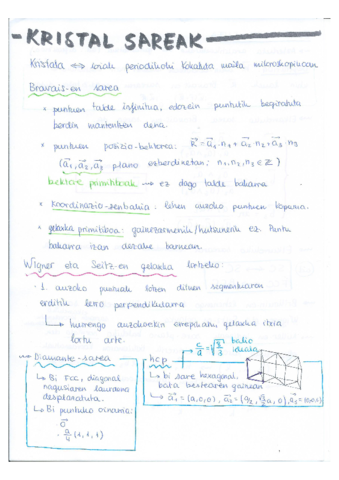 KRISTAL SAREAK
Kristala ⟺ ioiak periodikoki kokatuta maila mikroskopikoan
Bravais-en sarea
* puntuen talde infinitua, edozein puntutik begiratuta
berdin mantentzen dena.
* puntuen posizio-bektorea: R⃗ = a⃗₁·n₁ + a⃗₂·n₂ + a⃗₃·n₃
(a⃗₁, a⃗₂, a⃗₃ plano ezberdinetan; n₁, n₂, n₃ ∈ ℤ)
bektore primitiboak → ez dago talde bakarra
* Koordinazio-zenbakia: lehen auzoko puntuen kopurua.
* gelaxka primitiboa: gainezarmenik/hutsunerik ez. Puntu
bakarra izan dezake barnean.
Wigner eta Seitz-en gelaxka lortzeko:
· 1. auzoko puntuak lotzen dituen segmentuaren
erditik lerro perpendikularra
↳ hurrengo auzokoekin errepikatu, gelaxka itxia
lortu arte.
c/a = √(8/3) balio ideala
Diamante-sarea
↳ Bi FCC, diagonal
nagusiaren laurdena
desplazatuta.
↳ Bi puntuko oinarria:
· 0⃗
· a/4 (1, 1, 1)
hcp
↳ bi sare hexagonal
bata bestearen gainean
↳ a⃗₁ = (a, 0, 0), a⃗₂ = (a/2, √3/2 a, 0), a⃗₃ = (0, 0, c)